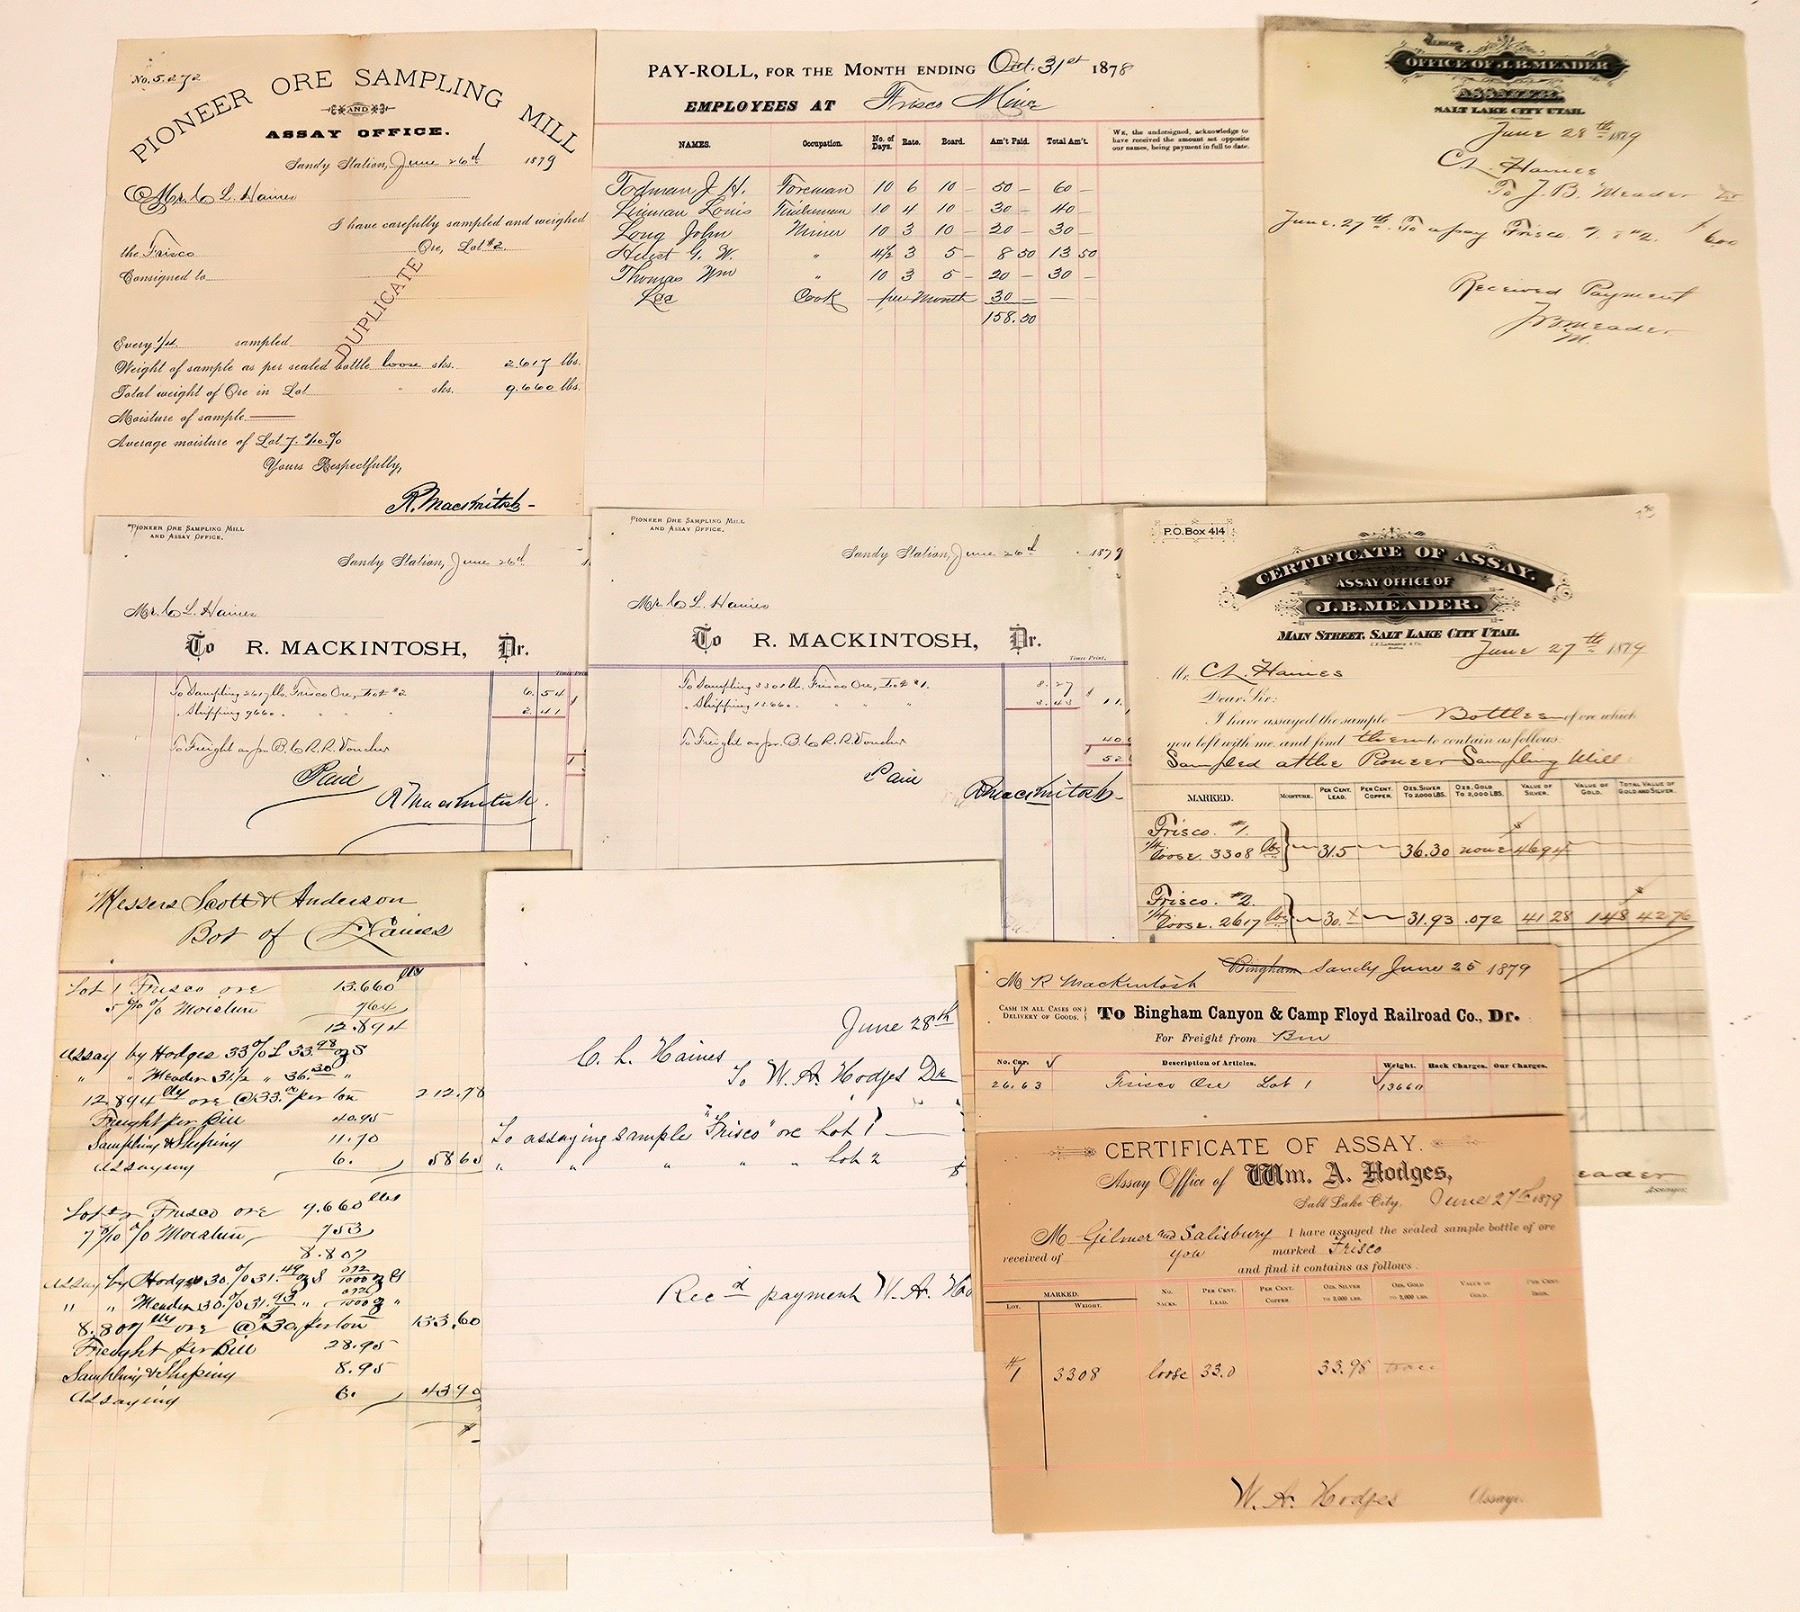 No. 5.272
PIONEER ORE SAMPLING MILL
AND
ASSAY OFFICE.
Sandy Station, June 26th 1879
Mr. C. L. Haines
I have carefully sampled and weighed
the Frisco Ore, Lot #2.
Consigned to
DUPLICATE
Every sampled
Weight of sample as per sealed bottle loose sks. 2617 lbs.
Total weight of Ore in Lot " sks. 9.660 lbs.
Moisture of sample
Average moisture of Lot 7. 8/10. %
Yours Respectfully,
R. Mackintosh
PAY-ROLL, FOR THE MONTH ENDING Oct. 31st 1878
EMPLOYEES AT Frisco Mine
NAMES. Occupation. No. of Days. Rate. Board. Am't Paid. Total Am't.
WE, the undersigned, acknowledge to
have received the amount set opposite
our names, being payment in full to date.
Todman J. H. Foreman 10 6 10 - 50 - 60 -
Linman Louis Timberman 10 4 10 - 30 - 40 -
Long John Miner 10 3 10 - 20 - 30 -
Hulst G. W. " 4½ 3 5 - 8 50 13 50
Thomas Wm " 10 3 5 - 20 - 30 -
Lee Cook per Month 30 -
158.50
OFFICE OF J. B. MEADER
ASSAYER.
SALT LAKE CITY UTAH.
June 28th 1879
C L. Haines
To J. B. Meader Dr
June. 27th. To assay Frisco #1. & #2. $ 6.00
Received Payment
J B Meader
PIONEER ORE SAMPLING MILL
AND ASSAY OFFICE.
Sandy Station, June 26th
Mr. C. L. Haines
To R. MACKINTOSH, Dr.
To Sampling 2617 lb. Frisco Ore, Lot #2 6. 54
" Shipping 9660 " " " 2. 41
To Freight as pr. B. C. R. R. Voucher
Paid
R Mackintosh.
PIONEER ORE SAMPLING MILL
AND ASSAY OFFICE.
Sandy Station, June 26th 1879
Mr. C. L. Haines
To R. MACKINTOSH, Dr.
Times Print,
To Sampling 3308 lb. Frisco Ore, Lot #1. 8. 27
" Shipping 13.660 " " " 3. 43 11
To Freight as pr. B. C. R. R. Voucher 40
52
Paid
R Mackintosh
P.O. Box 414
CERTIFICATE OF ASSAY.
ASSAY OFFICE OF
J. B. MEADER.
MAIN STREET. SALT LAKE CITY UTAH.
June 27th 1879
Mr. C L. Haines
Dear Sir:
I have assayed the sample Bottles of ore which
you left with me, and find them to contain as follows:
Sampled at the Pioneer Sampling Mill
MARKED. MOISTURE. PER CENT. LEAD. PER CENT. COPPER. OZS. SILVER TO 2,000 LBS. OZS. GOLD TO 2,000 LBS. VALUE OF SILVER. VALUE OF GOLD. TOTAL VALUE OF GOLD AND SILVER.
Frisco. #1.
loose. 3308 lbs 31.5 36.30 none 46 94
Frisco. #2.
loose. 2617 lbs 30. 31.93 .072 41 28 1 48 42 76
Messers Scott & Anderson
Bot of C L Haines
Lot 1 Frisco ore 13.660 lbs
% Moisture 764
12.894
Assay by Hodges 33% L 33.98 oz S
" " Meader 31½ " 36.30 "
12.894 lbs ore @ 33.00 per ton 212.78
Freight per Bill 40.95
Sampling & Shiping 11.70
Assaying 6. 58 65
Lot 2 Frisco ore 9.660 lbs
7 8/10 % Moisture 753
8.807
Assay by Hodges 30.% 31.49 oz S 072/1000 oz G
" " Meader 30.% 31.93 "
8.807 lbs ore @ 30. per ton 133.60
Freight per Bill 28.95
Sampling & Shiping 8.95
Assaying 6. 43 90
June 28th
C. L. Haines
To W. A. Hodges Dr
To assaying sample "Frisco" ore Lot 1
" " " " " Lot 2
Rec'd payment W. A. Ho
Bingham Sandy June 25 1879
M R Mackintosh
CASH IN ALL CASES ON DELIVERY OF GOODS.
To Bingham Canyon & Camp Floyd Railroad Co., Dr.
For Freight from Bin
No. Car. Description of Articles. Weight. Back Charges. Our Charges.
26.63 Frisco Ore Lot 1 13660
CERTIFICATE OF ASSAY.
Assay Office of Wm. A. Hodges,
Salt Lake City, June 27th 1879
M Gilmer and Salisbury I have assayed the sealed sample bottle of ore
received of you marked Frisco
and find it contains as follows.
MARKED. LOT. WEIGHT. NO. SACKS. PER CENT. LEAD. PER CENT. COPPER. OZS. SILVER TO 2,000 LBS. OZS. GOLD TO 2,000 LBS. VALUE OF GOLD. PER CENT. IRON.
#1 3308 loose 33.0 33.98 trace
W. A. Hodges Assayer
eader
ASSAYER.